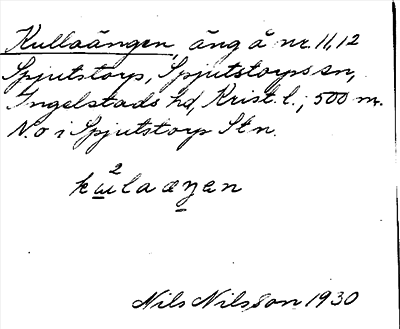 Kullaängen, äng å nr. 11, 12
Spjutstorp, Spjutstorps sn,
Ingelstads hd, Krist. l.; 500 m.
N.o i Spjutstorp Stn.
kɯ²laæŋen
Nils Nilsson 1930